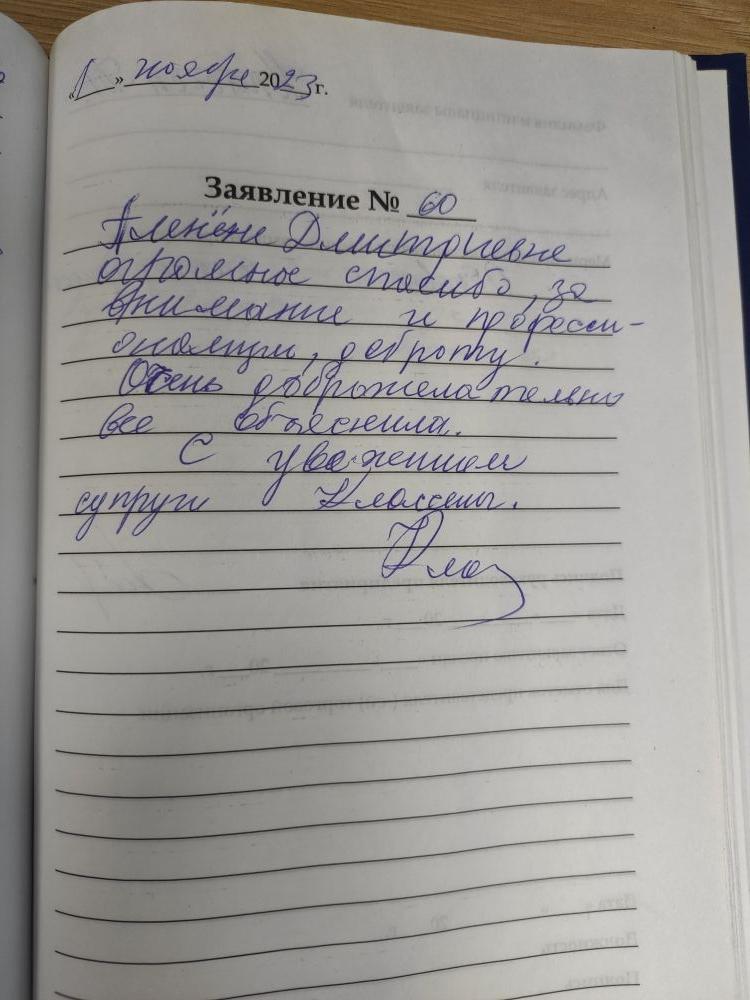 «1» ноября 2023 г.
Заявление № 60
Алёне Дмитриевне
огромное спасибо, за
внимание и професси-
онализм, доброту.
Очень доброжелательно
все объяснила.
С уважением
супруги